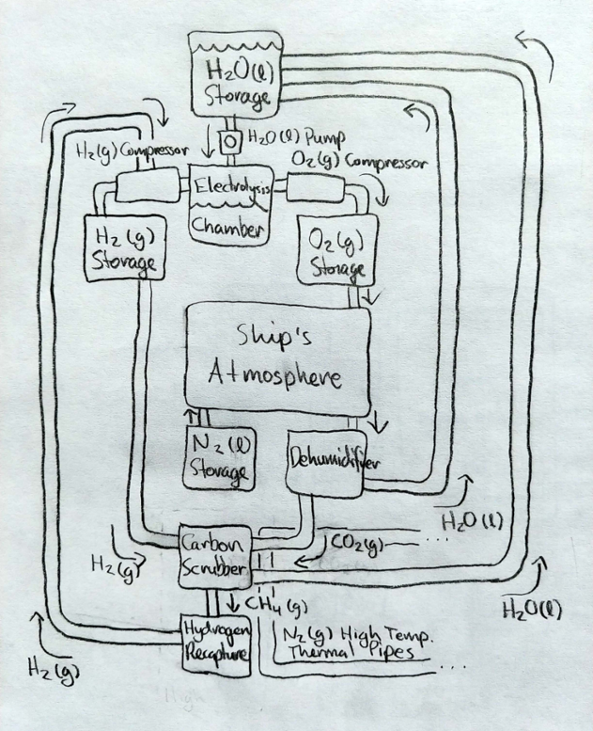 H2O(l)
Storage
H2O(l) Pump
H2(g) Compressor
O2(g) Compressor
Electrolysis
Chamber
H2(g)
Storage
O2(g)
Storage
Ship's
Atmosphere
N2(l)
Storage
Dehumidifier
H2O(l)
Carbon
Scrubber
CO2(g)
...
H2(g)
CH4(g)
H2O(l)
Hydrogen
Recapture
N2(g) High Temp.
Thermal Pipes
...
H2(g)